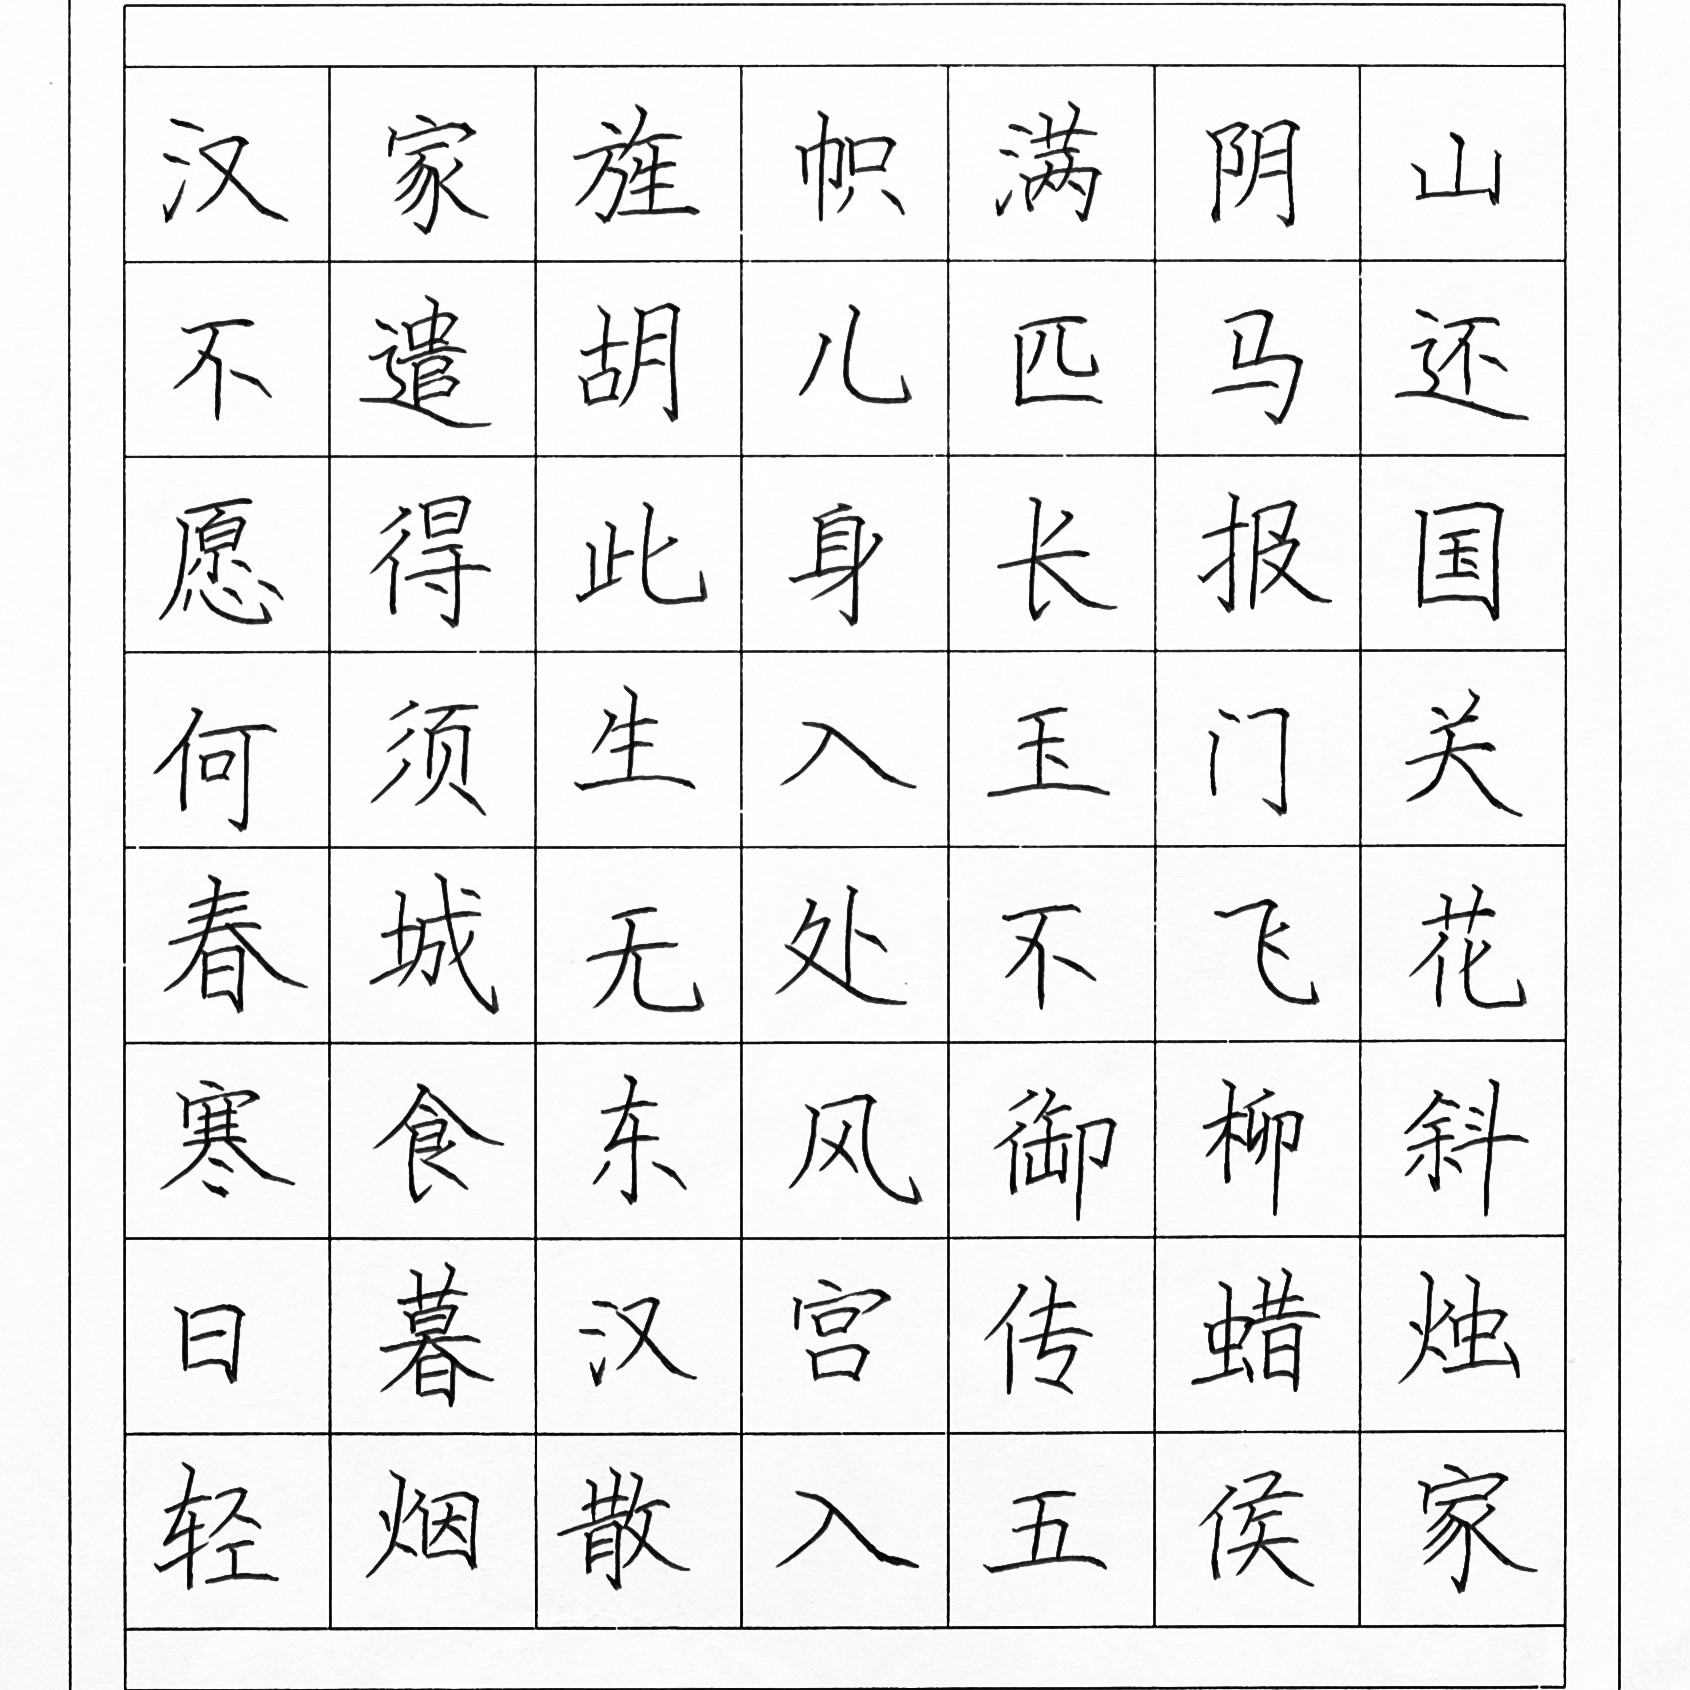 汉家旌帜满阴山
不遣胡儿匹马还
愿得此身长报国
何须生入玉门关
春城无处不飞花
寒食东风御柳斜
日暮汉宫传蜡烛
轻烟散入五侯家